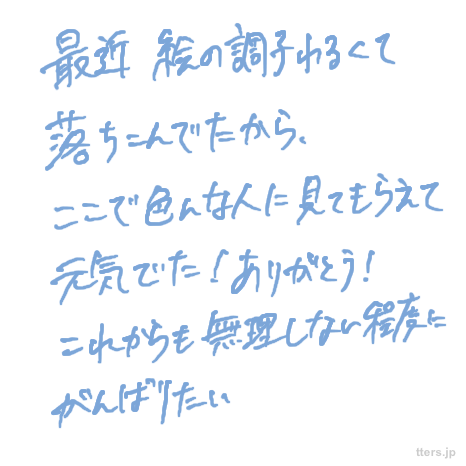 最近 絵の調子わるくて
落ちこんでたから、
ここで色んな人に見てもらえて
元気でた!ありがとう!
これからも無理しない程度に
がんばりたい
tters.jp